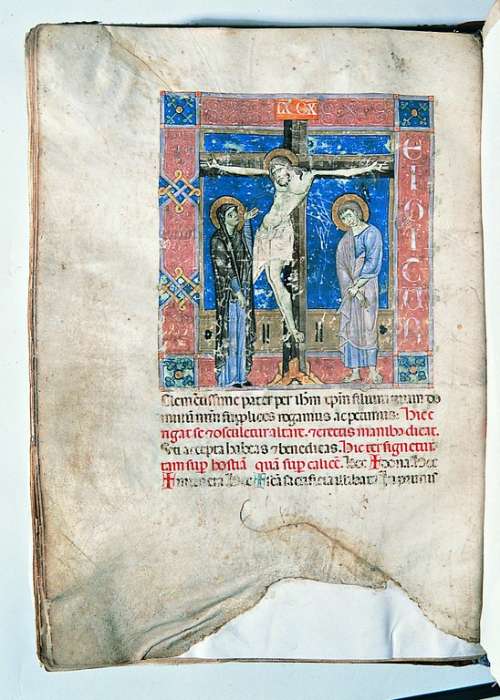 EIGITUR
Clemētissime pater per ihm xpm filium tuum do
minū nrm supplices rogamus ac petimus. Hic e
rigat se ⁊ osculetur altare. ⁊ erectis manibꝰ dicat.
Uti accepta habeas ⁊ benedicas. Hic ter signetur
tam sup hostiā quā sup calicē. Hec ✝ dona. Hec
✝ munera. Hec ✝ scā sacrificia illibata. In primis